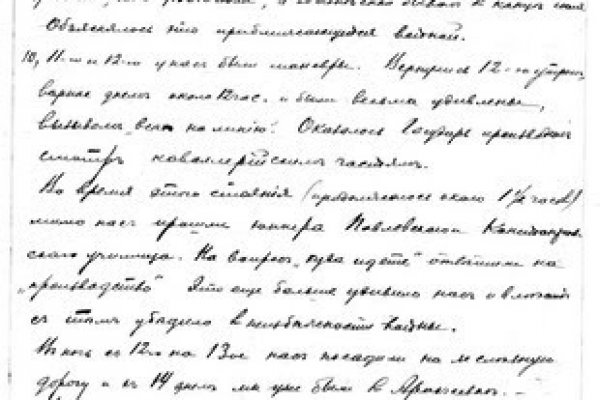 Объяснялось это приближающейся войной.
10, 11-го и 12-го у нас были маневры. Вернулись 12-го утром,
вернее днем около 12 час. и были весьма удивлены,
вызывом "всех на линию". Оказалось Государь производил
смотр кавалерийским частям.
Во время этого стояния (продолжалось около 1½ часов)
мимо нас прошли юнкера Павловского
ского училища. На вопрос "куда идете" ответили на
"производство" Это еще больше удивило нас и
с тем убедило в неизбежности войны.
В ночь с 12-го на 13-ое нас посадили на железную
дорогу и в 14 днем мы уже были в